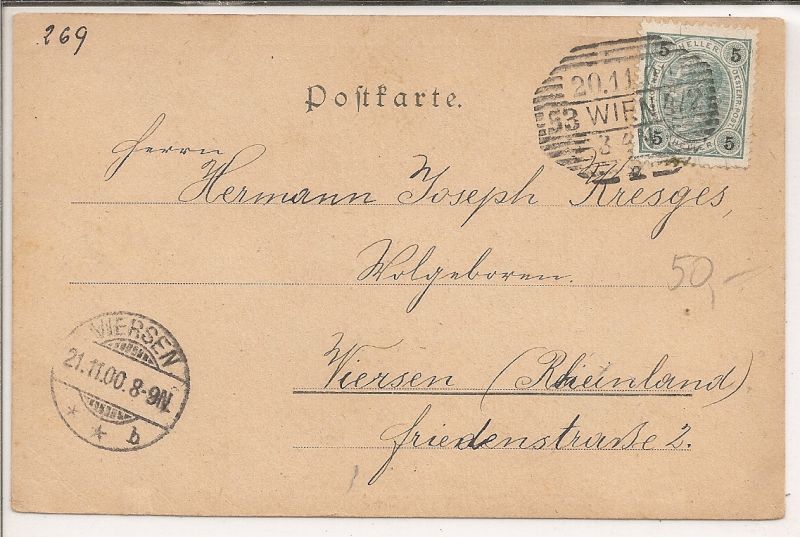 269
5 HELLER 5
5 5
20.11
53 WIEN 4/2
3 4
Postkarte.
Herrn
Hermann Joseph Kresges,
Wolgeboren.
50,-
VIERSEN
21.11.00. 8-9N.
* * b
Viersen (Rheinland)
Friedenstraße 2.